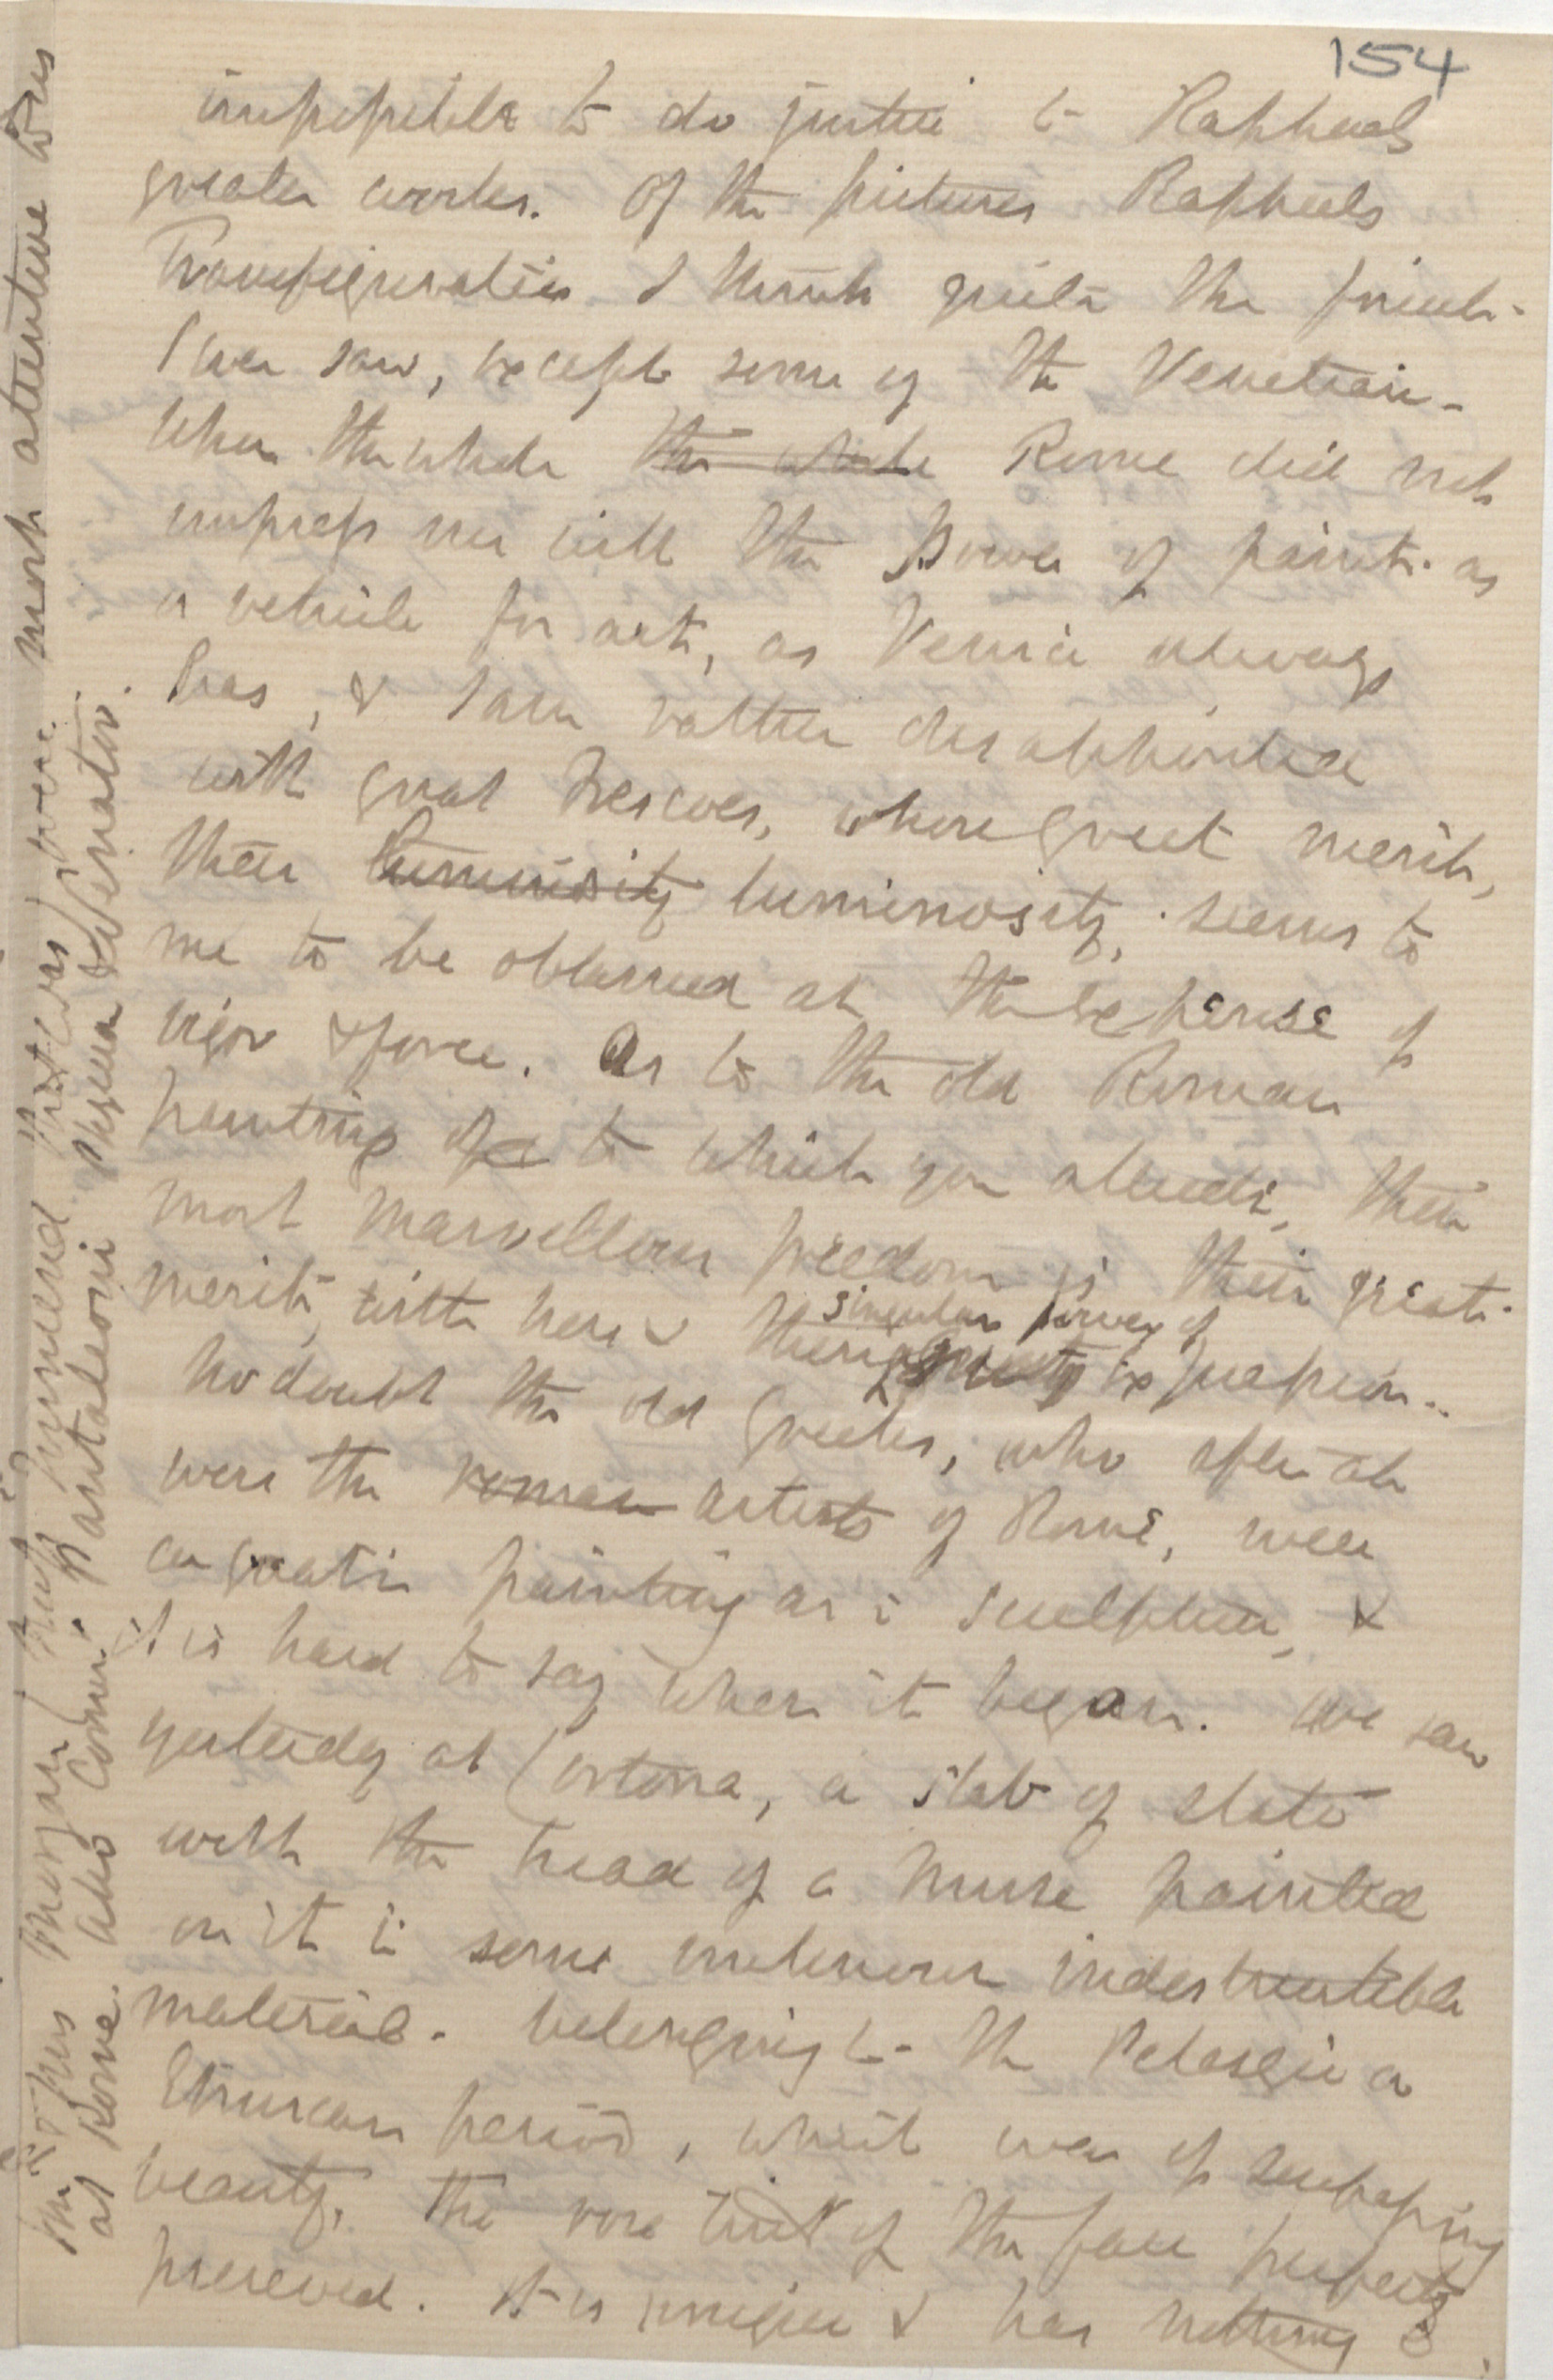 154
impossible to do justice to Raphaels
greater works. Of the pictures Raphaels
Transfiguration I think quite the finest
I ever saw, except some of the Venetian -
When the whole the whole Rome did not
impress me with the power of paint. as
a vehicle for art, as Venice always
has, & I am rather disappointed
with great frescoes, whose great merit,
their luminosity luminosity, seems to
me to be obtained at the expense of
vigor & force. As to the old Roman
paintings of to which you allude, their
most marvellous freedom is their great
merit, with here & there singular power of
expression..
No doubt the old Greeks, who after all
were the roman artists of Rome, were
as great in painting as in sculpture, &
it is hard to say when it began. We saw
yesterday at Cortona, a slab of slate
with the head of a Muse painted
on it in some unknown indestructible
material. belonging to the Pelasgic or
Etruscan period, which was of surpassing
beauty. The rose tint of the face perfectly
preserved. It is unique & has nothing to
most attentive to us
at Rome. Also Comm. Pantaleoni & Senator.